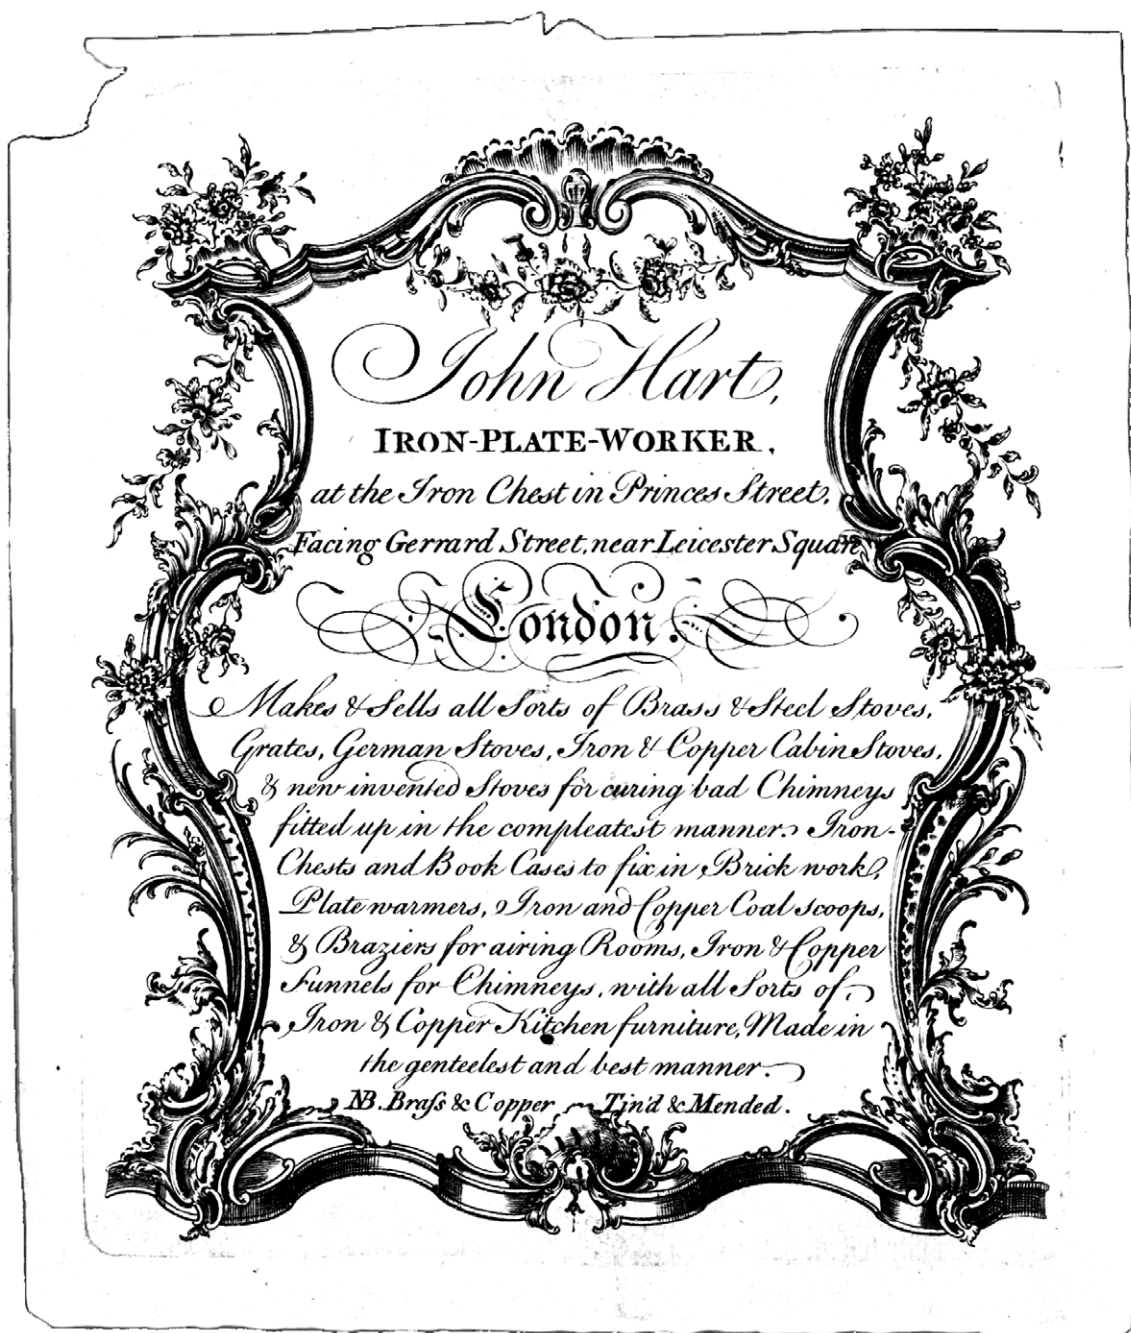 John Hart,
IRON-PLATE-WORKER,
at the Iron Chest in Princes Street,
Facing Gerrard Street, near Leicester Square
London.
Makes & Sells all Sorts of Brass & Steel Stoves,
Grates, German Stoves, Iron & Copper Cabin Stoves,
& new invented Stoves for curing bad Chimneys
fitted up in the compleatest manner. Iron-
Chests and Book Cases to fix in Brick work,
Plate warmers, Iron and Copper Coal scoops,
& Braziers for airing Rooms, Iron & Copper
Funnels for Chimneys, with all Sorts of
Iron & Copper Kitchen furniture, Made in
the genteelest and best manner.
NB. Braſs & Copper Tin'd & Mended.